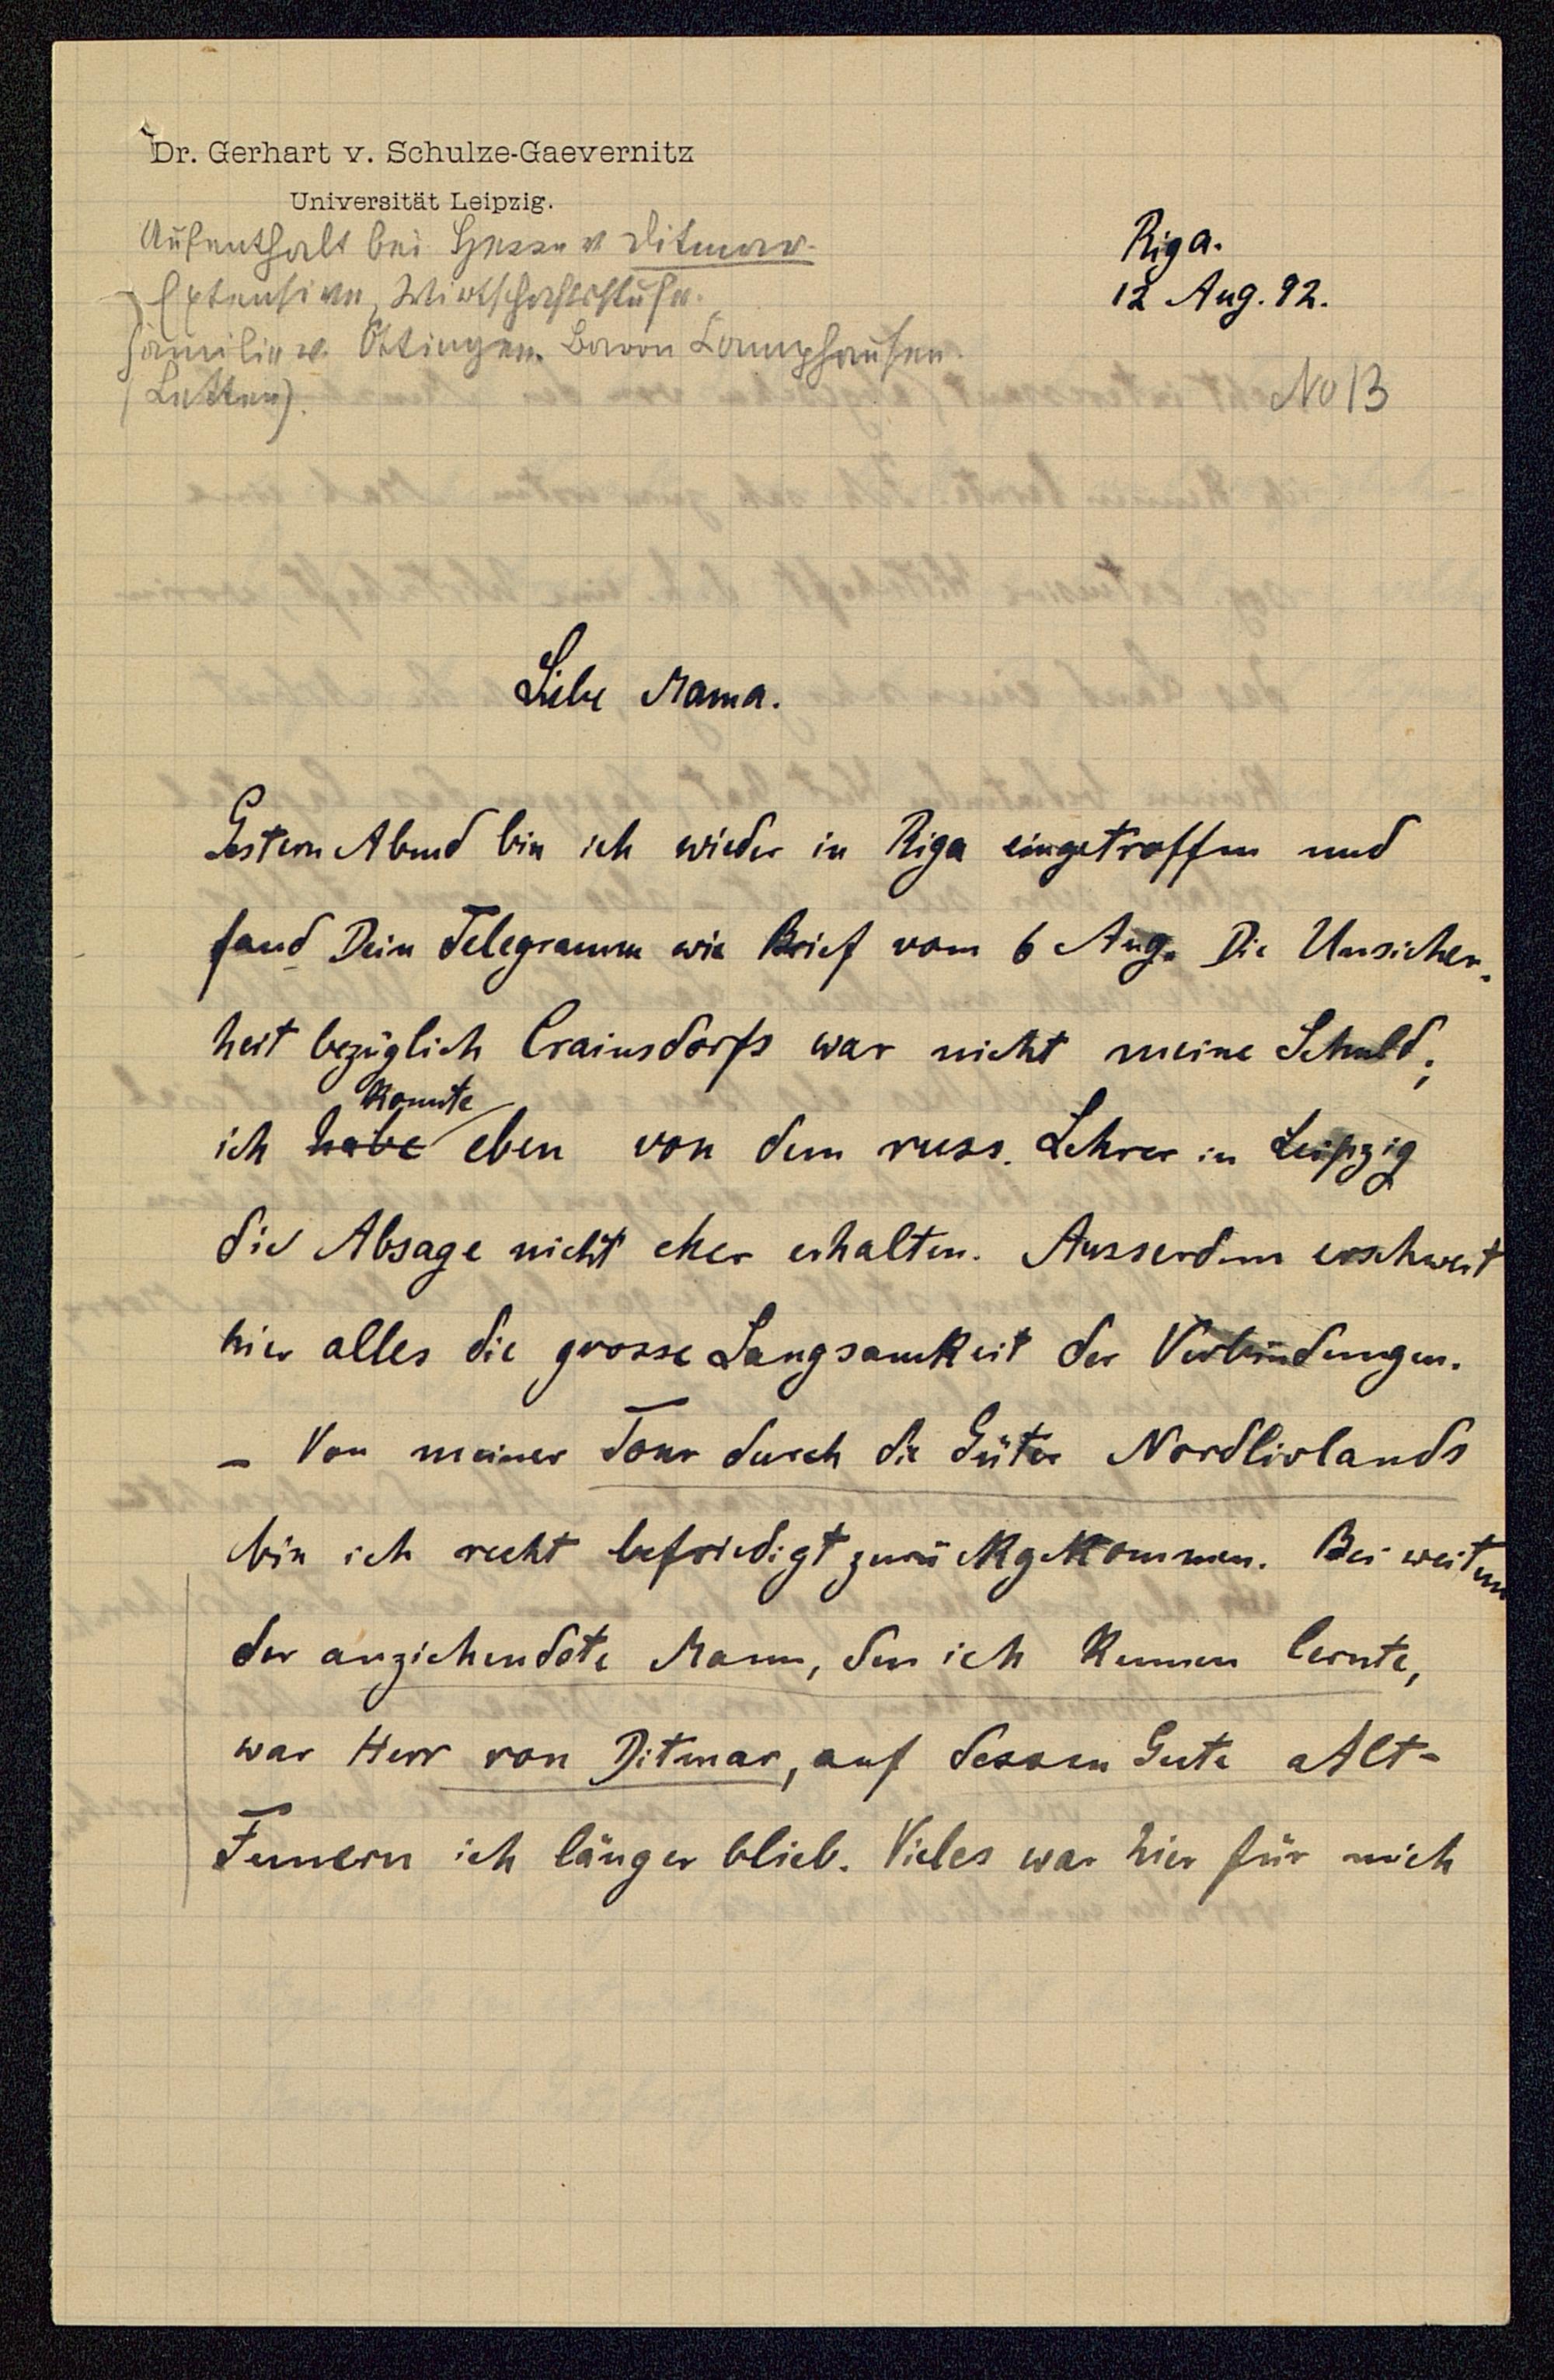 Dr. Gerhart v. Schulze-Gaevernitz
Universität Leipzig.
Aufenthalt bei Herrn v Ditmar.
Extensive, Wirtschaftsstufe.
Familie v. Öttingen. Baron Campenhausen.
(Letten).
Riga.
12 Aug. 92.
No 13
Liebe Mama.
Gestern Abend bin ich wieder in Riga eingetroffen und
fand Dein Telegramm wie Brief vom 6 Aug. Die Unsicher-
heit bezüglich Crainsdorfs war nicht meine Schuld;
konnte
ich habe eben von dem russ. Lehrer in Leipzig
die Absage nicht eher erhalten. Ausserdem erschwert
hier alles die grosse Langsamkeit der Verbindungen.
– Von meiner Tour durch die Güter Nordlivlands
bin ich recht befriedigt zurückgekommen. Bei weitem
der anziehendste Mann, den ich kennen lernte,
war Herr von Ditmar, auf dessen Gute Alt-
Fennern ich länger blieb. Vieles war hier für mich